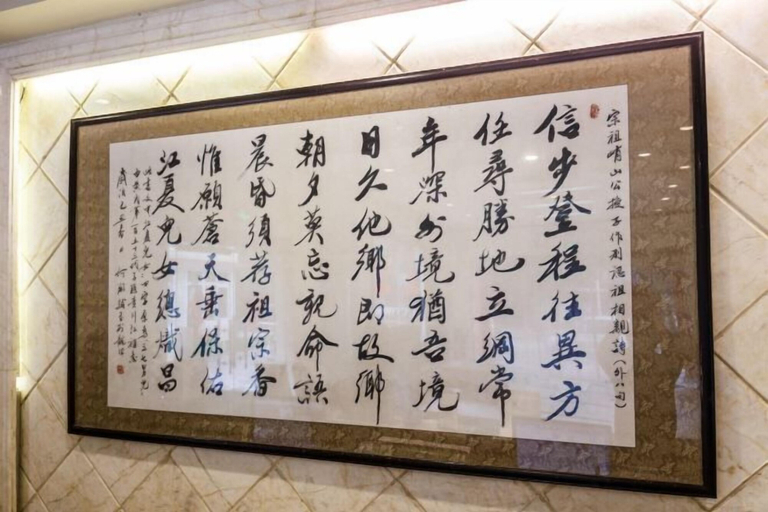 宗祖峭山公授子作別認祖相親詩(外八句)
信步登程往異方
任尋勝地立綱常
年深外境猶吾境
日久他鄉即故鄉
朝夕莫忘親命語
晨昏須荐祖宗香
惟願蒼天垂保佑
江夏兒女總熾昌